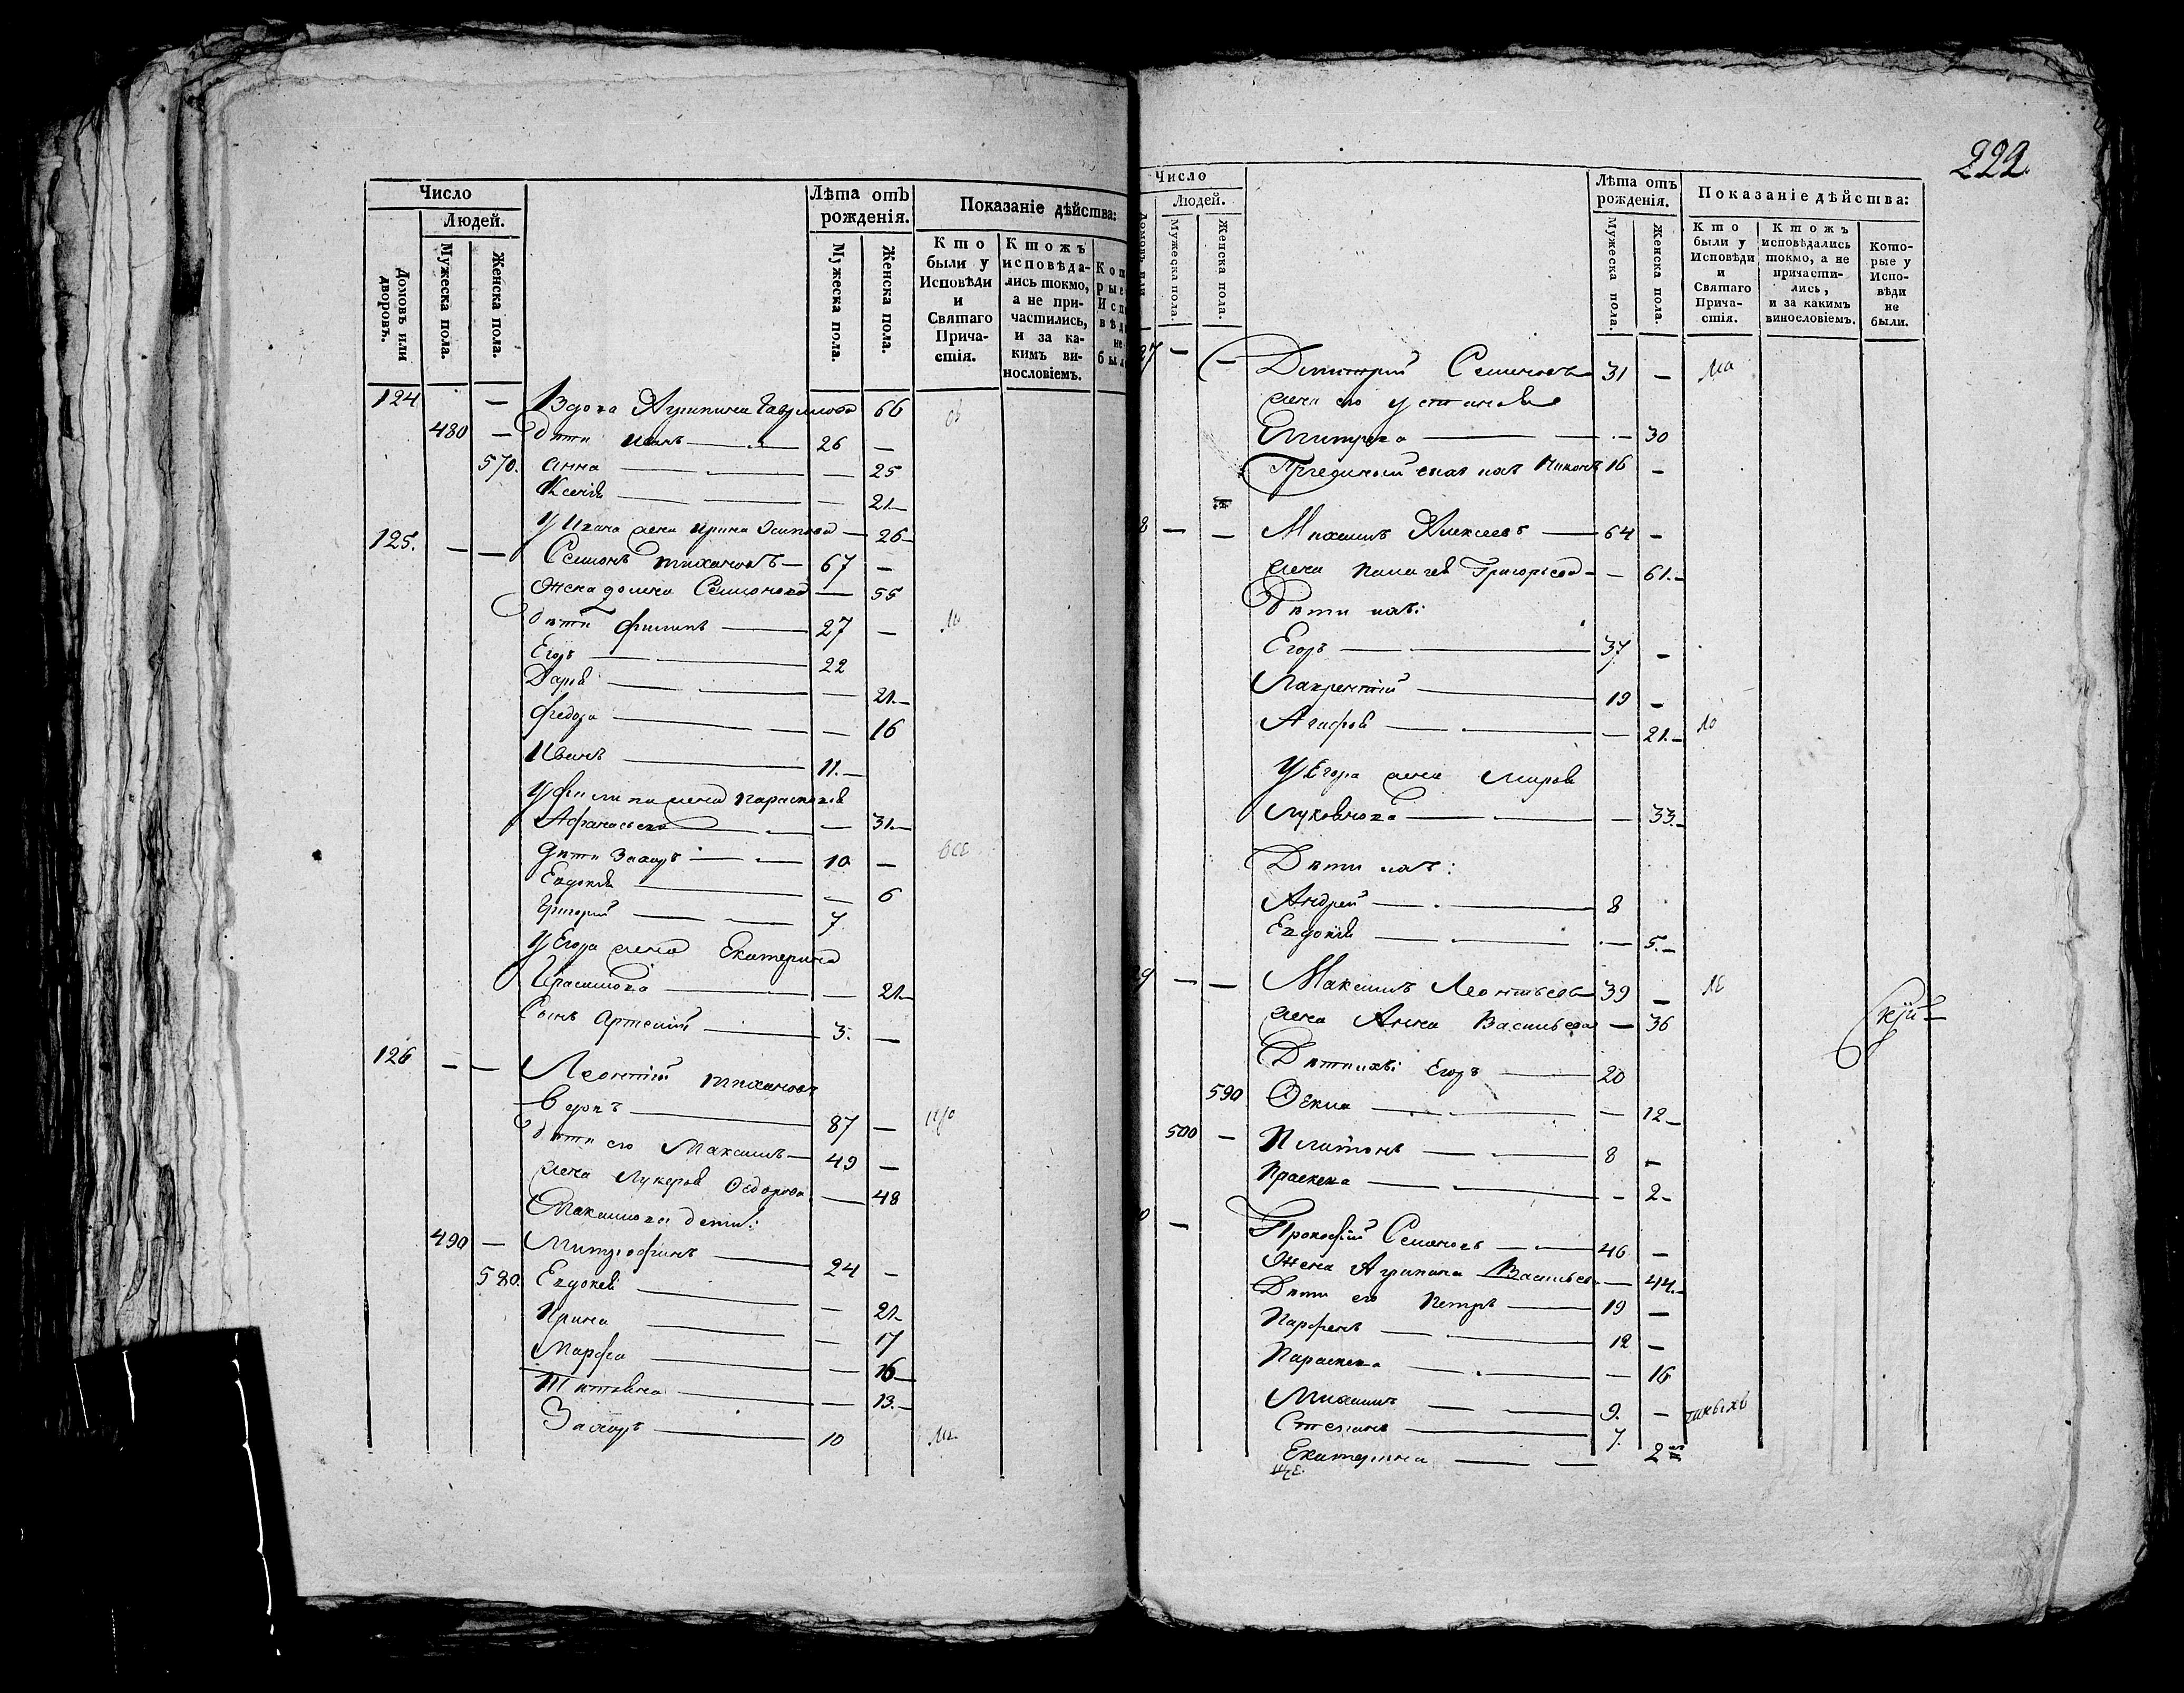 Число
Людей.
Домовъ или дворовъ.
Мужеска пола.
Женска пола.
Лѣта отъ рожденія.
Мужеска пола.
Женска пола.
Показаніе дѣйства:
Кто были у Исповѣди и Святаго Причастія.
Ктожъ исповѣдались токмо, а не причастились, и за какимъ винословіемъ.
124 — Вдова Агрипина Гаврилова 66
480 — дѣти Иванъ — 26 —
570. Анна — — 25
Ксенія — — 21
У Ивана жена Ирина Осипова — 26
125. — — Семіонъ Тихановъ — 67 —
Жена Домна Семіонова — 55
дѣти Филипъ — 27 —
Егоръ — 22
Дарія — — 21
Федора — — 16
Иванъ — 11
У Филипа жена Параскевія
Афанасьева — — 31
Дѣти Захаръ — 10 — всѣ
Евдокія — — 6
Григорій — 7
У Егора жена Екатерина
— 21
Сынъ Артемій — 3. —
126 — — Леонтій Тихановъ
вдовъ — 87 —
дѣти его Максимъ — 49 —
жена Лукерія Федорова — 48
Максимова дети:
490 — Митрофанъ — 24 —
580. Евдокея — — 21
Ирина — — 17
Марфа — — 16
Татьяна — — 13
Захаръ — 10
222
Число
Людей.
Домовъ или
Мужеска пола.
Женска пола.
Лѣта отъ рожденія.
Мужеска пола.
Женска пола.
Показаніе дѣйства:
Кто были у Исповѣди и Святаго Причастія.
Ктожъ исповѣдались токмо, а не причастились, и за какимъ винословіемъ.
Которые у Исповѣди не были.
27 — — Димитрій Семіоновъ 31 —
жена его Устинова
— — 30
Никонъ 16 —
8 — — Михаилъ Алексеевъ — 64 —
жена Палагея Григорьева — 61
Дѣти ихъ:
Егоръ — 37 —
Лаврентій — 19 —
Агафія — — 21
У Егора жена Марія
— 33
Дѣти ихъ:
Андрей — 8
Евдокія — — 5
9 — — Максимъ Леонтьевъ 39 —
жена Анна Васильева — 36
Дѣти ихъ: Егоръ — 20
590 Фекла — — 12
500 — Платонъ — 8 —
Праскева — — 2
0 — Прокофій Семіоновъ — 46 —
Жена Агрипина Васильева — 44
Дѣти его Петръ — 19 —
Парфенъ — 12 —
Параскева — — 16
Михаилъ — 9. —
Степанъ — 7.
Екатерина — — 2